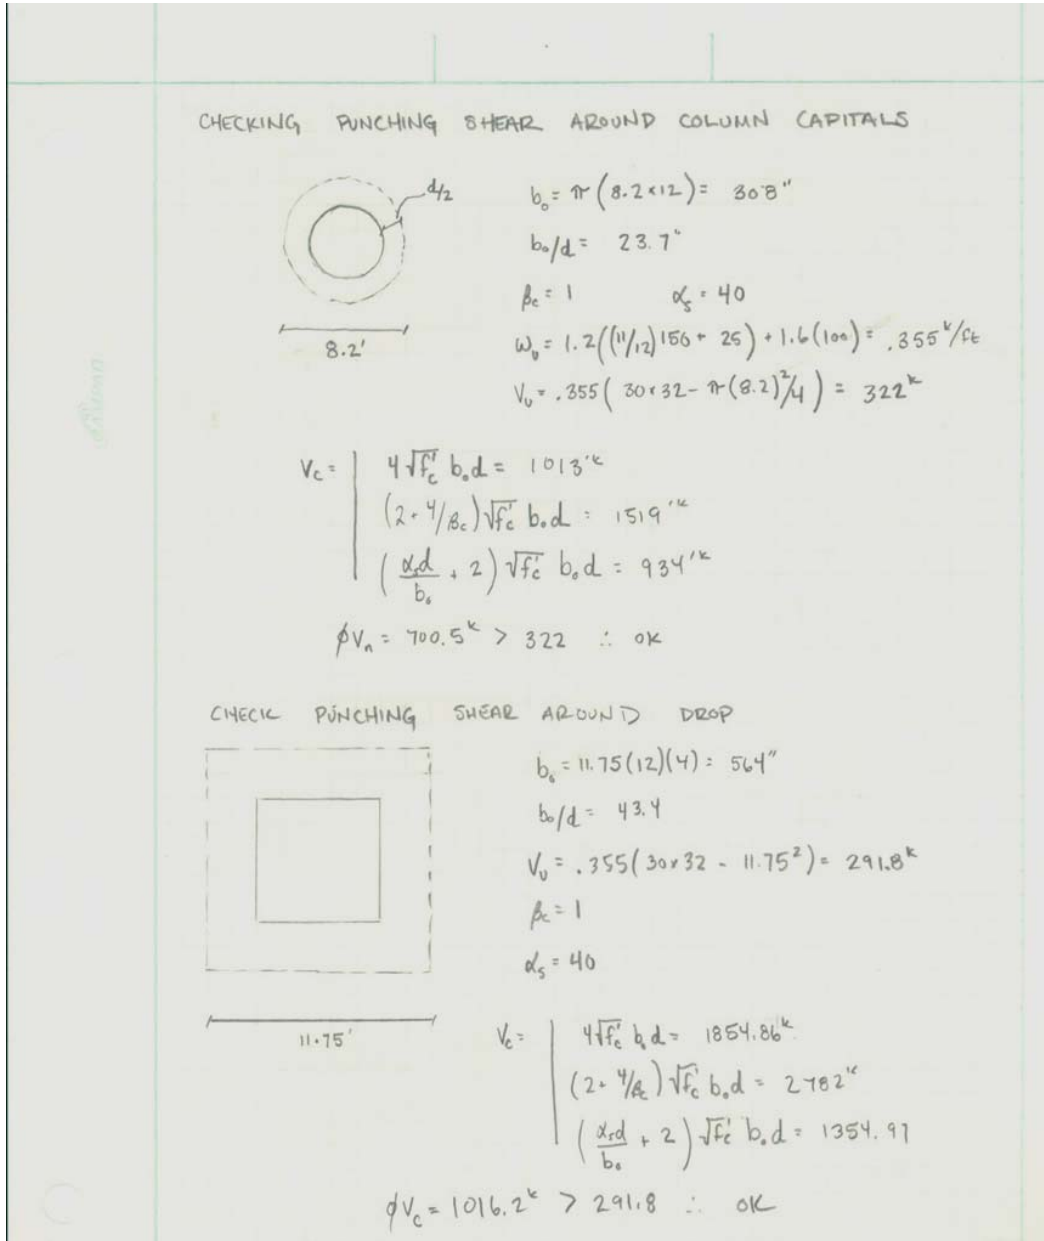 CHECKING PUNCHING SHEAR AROUND COLUMN CAPITALS
d/2
b₀ = π (8.2×12) = 308"
b₀/d = 23.7"
βc = 1 αs = 40
8.2'
ωu = 1.2((11/12)150 + 25) + 1.6(100) = .355 k/ft
Vu = .355( 30×32 - π(8.2)²/4 ) = 322k
Vc = 4√f'c b₀d = 1013'k
(2 + 4/βc)√f'c b₀d = 1519'k
(αsd/b₀ + 2) √f'c b₀d = 934'k
φVn = 700.5k > 322 ∴ OK
CHECK PUNCHING SHEAR AROUND DROP
b₀ = 11.75(12)(4) = 564"
b₀/d = 43.4
Vu = .355(30×32 - 11.75²) = 291.8k
βc = 1
αs = 40
11.75'
Vc = 4√f'c b₀d = 1854.86k
(2 + 4/βc)√f'c b₀d = 2782'k
(αsd/b₀ + 2) √f'c b₀d = 1354.97
φVc = 1016.2k > 291.8 ∴ OK